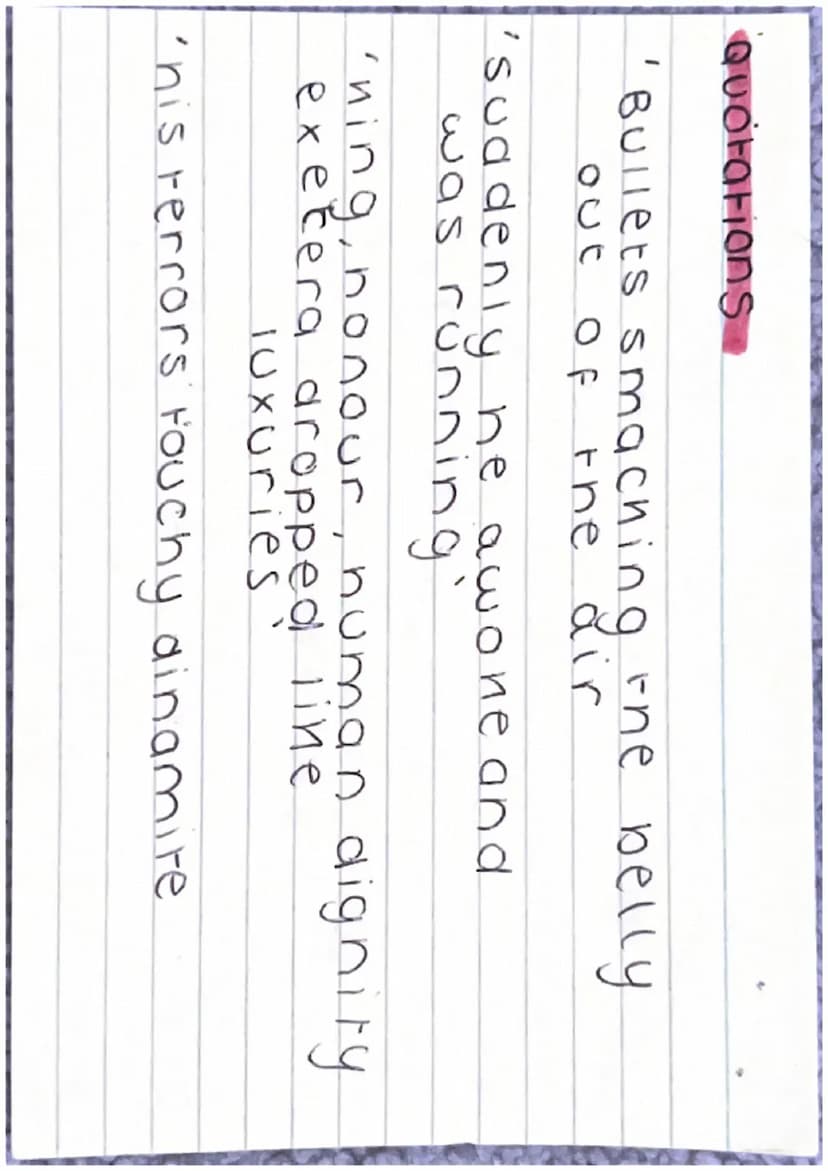 Quotations
'Bullets smacking the belly
out of the air
'suddenly he awoke and
was running'
'king, honour, human dignity
exetera dropped like
luxuries'
'his terrors' touchy dinamite